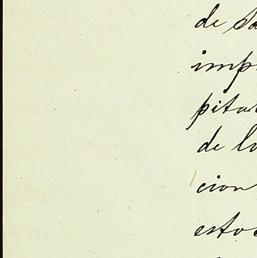 de Sa
imp
pita
de lo
cion
estos